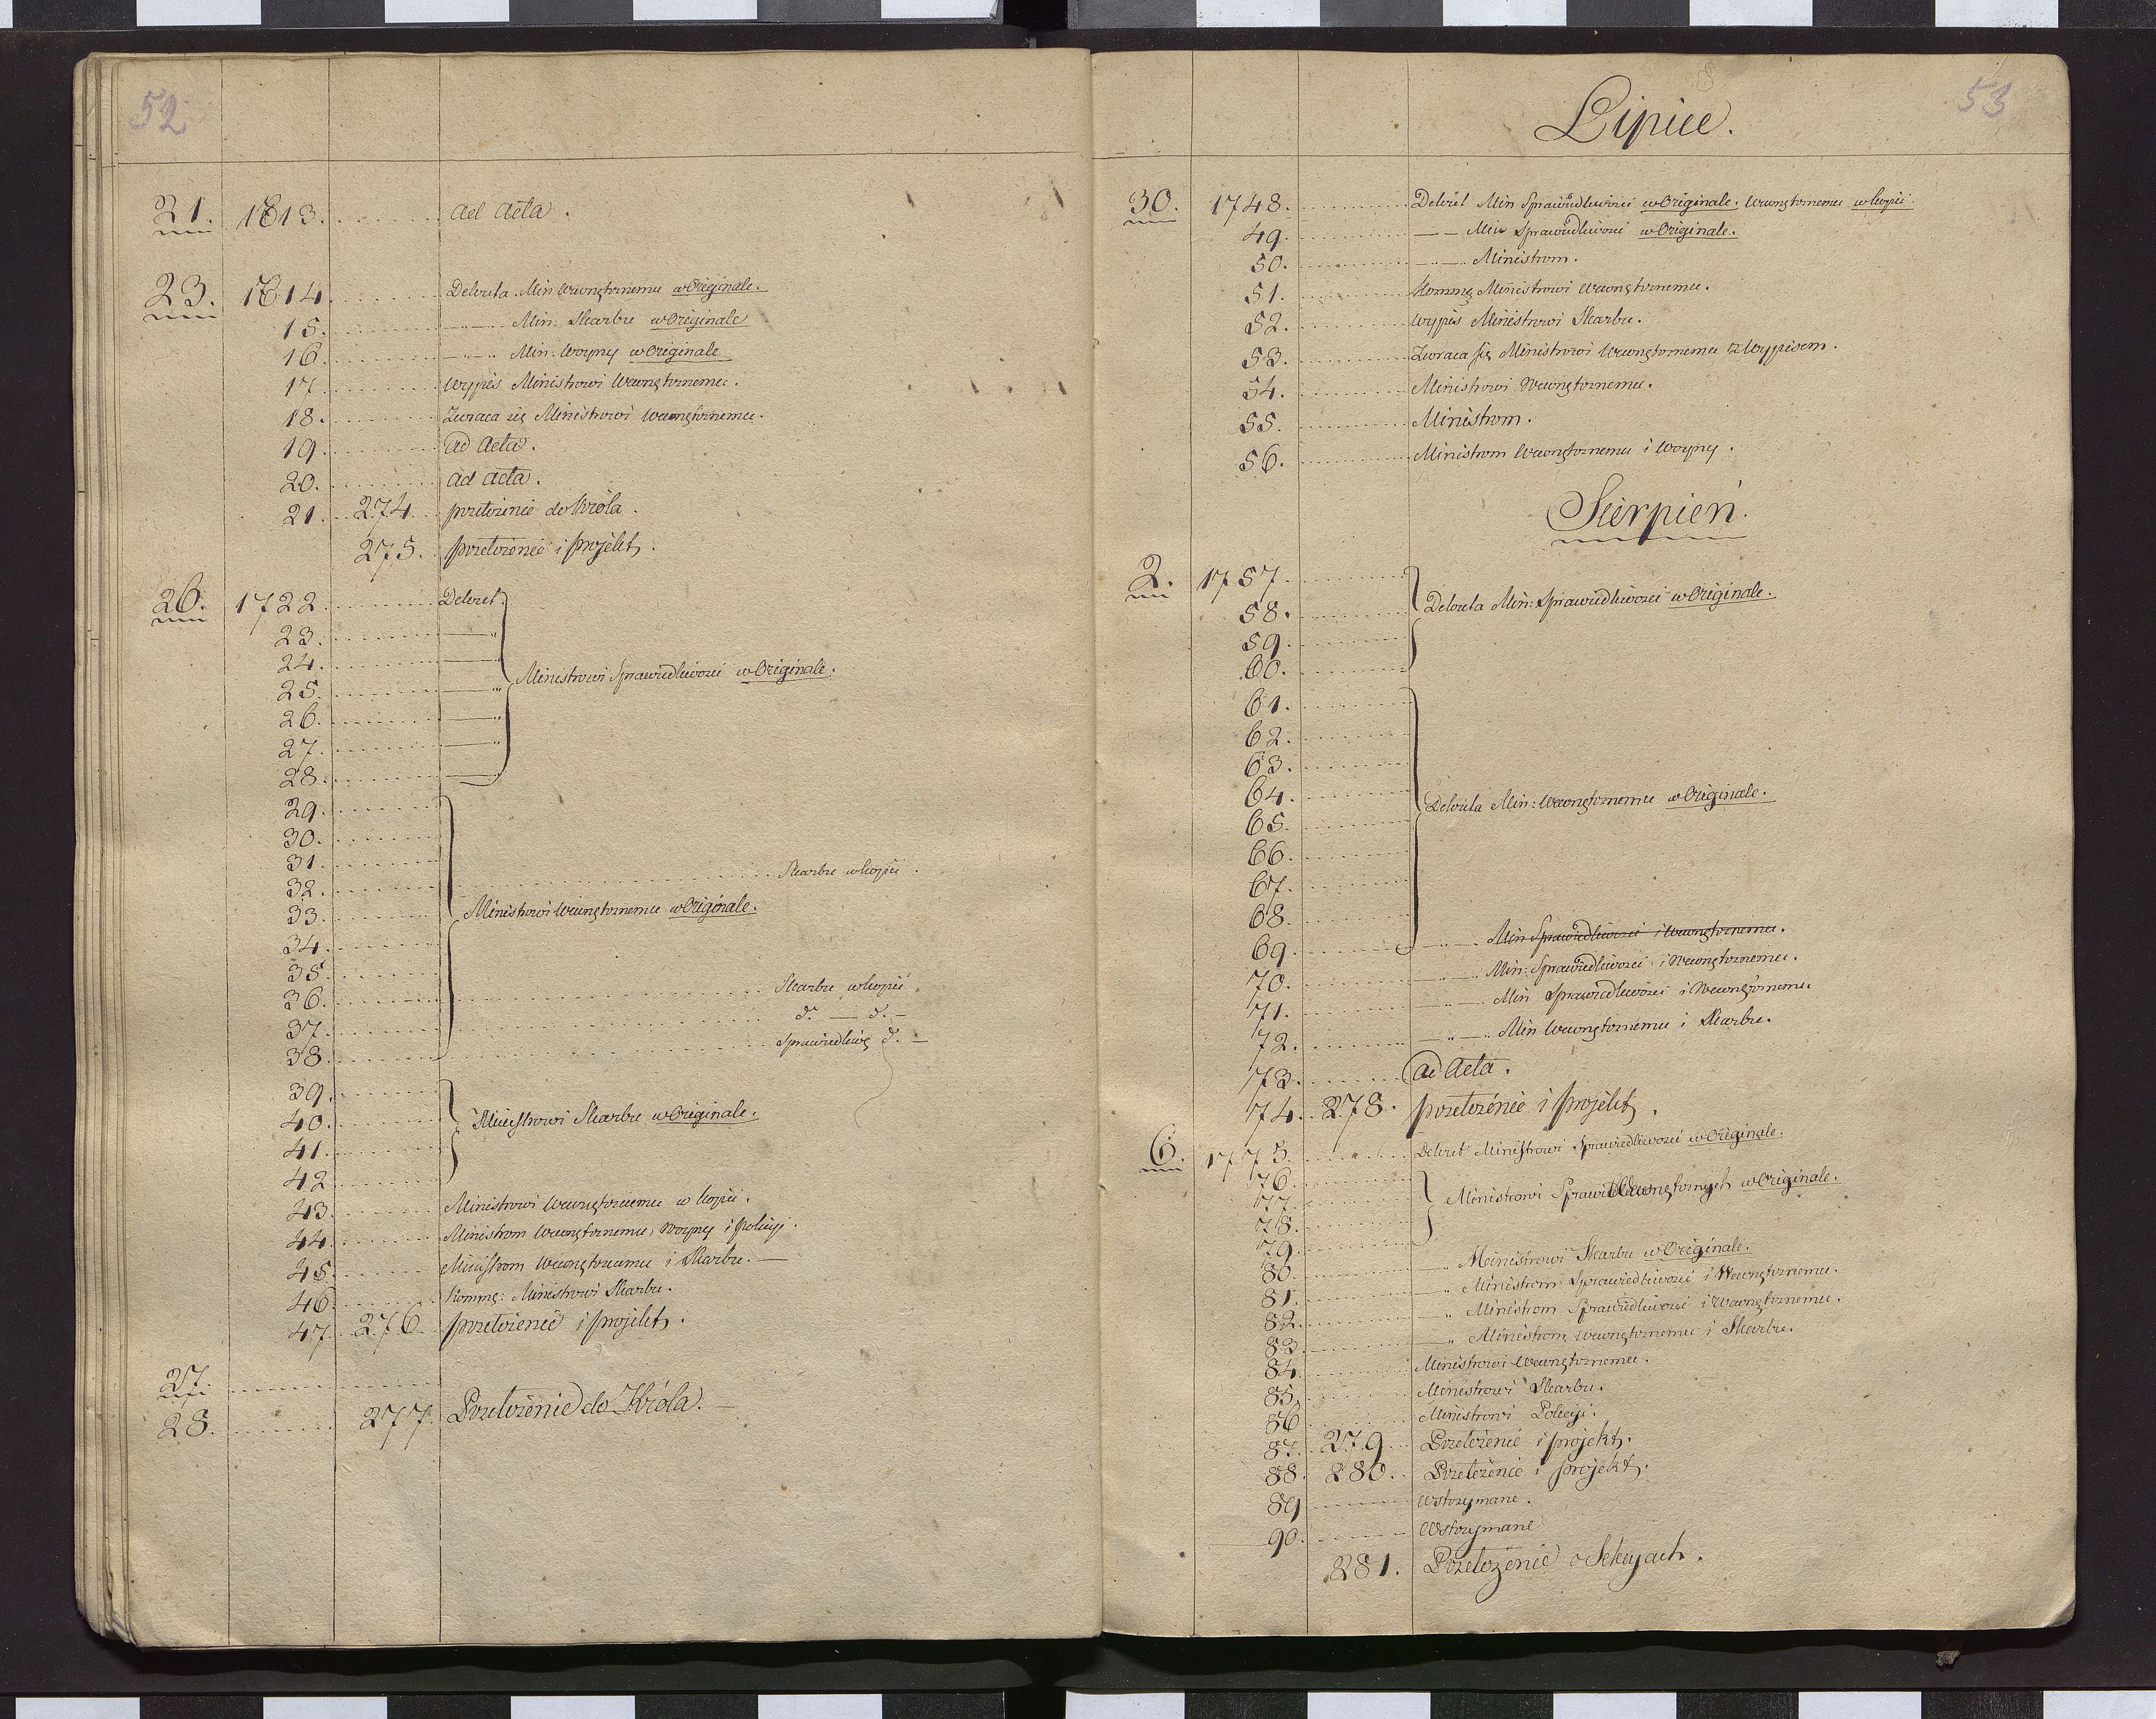 52
21. 1713. ad Acta.
23. 1714. Dekreta Min Wewnętrznemu w Originale.
15. —„— Min: Skarbu w Originale
16. —„— Min: Woyny w Originale
17. Wypis Ministrowi Wewnętrznemu.
18. Zwraca się Ministrowi Wewnętrznemu.
19. ad Acta.
20. ad Acta.
21. 274. przełożenie do Króla.
275. przełożenie i projekt.
26. 1722. Dekret
23. —„
24. —„
25. —„ Ministrowi Sprawiedliwości w Originale.
26. —„
27. —„
28. —„
29.
30.
31.
32. Skarbu w kopii.
33. Ministrowi Wewnętrznemu w Originale.
34.
35.
36. Skarbu w kopii.
37. d°. — d°. —
38. Sprawiedliwę d°. —
39.
40. Ministrowi Skarbu w Originale.
41.
42.
43. Ministrowi Wewnętrznemu w kopii.
44. Ministrom Wewnętrznemu, Woyny i Policyi.
45. Ministrom Wewnętrznemu i Skarbu. —
46. Kommę: Ministrowi Skarbu.
47. 276. przełożenie i projekt.
27.
28. 277. Przełożenie do Króla. —
53
Lipiec.
30. 1748. Dekret Min Sprawiedliwości w Originale. Wewnętrznemu w kopii.
49. —— Min Sprawiedliwości w Originale.
50. —„— Ministrom.
51. Kommę Ministrowi Wewnętrznemu.
52. Wypis Ministrowi Skarbu.
53. Zwraca się Ministrowi Wewnętrznemu z Wypisem.
54. Ministrowi Wewnętrznemu.
55. Ministrom.
56. Ministrom Wewnętrznemu i Woyny.
Sierpień.
2. 1757.
58. Dekreta Min: Sprawiedliwości w Originale.
59.
60.
61.
62.
63.
64. Dekreta Min: Wewnętrznemu w Originale.
65.
66.
67.
68.
69. —„— Min Sprawiedliwości i Wewnętrznemu.
70. —„— Min: Sprawiedliwości i Wewnętrznemu.
71. —„— Min Sprawiedliwości i Wewnętrznemu
72. —„— Min Wewnętrznemu i Skarbu.
73. ad Acta.
74. 278. przełożenie i projekt.
6. 1775. Dekret Ministrowi Sprawiedliwości w Originale.
76.
77. Ministrowi Spraw Wewnętrznych w Originale.
78.
79. —„ Ministrowi Skarbu w Originale.
80. —„ Ministrom Sprawiedliwości i Wewnętrznemu.
81. —„ Ministrom Sprawiedliwości i Wewnętrznemu.
82. —„ Ministrom Wewnętrznemu i Skarbu.
83.
84. Ministrowi Wewnętrznemu.
85. Ministrowi Skarbu.
86. Ministrowi Policyi.
87. 279. Przełożenie i projekt.
88. 280. Przełożenie i projekt.
89. Wstrzymane.
90. Wstrzymane
281. Przełożenie o Sekcyach.